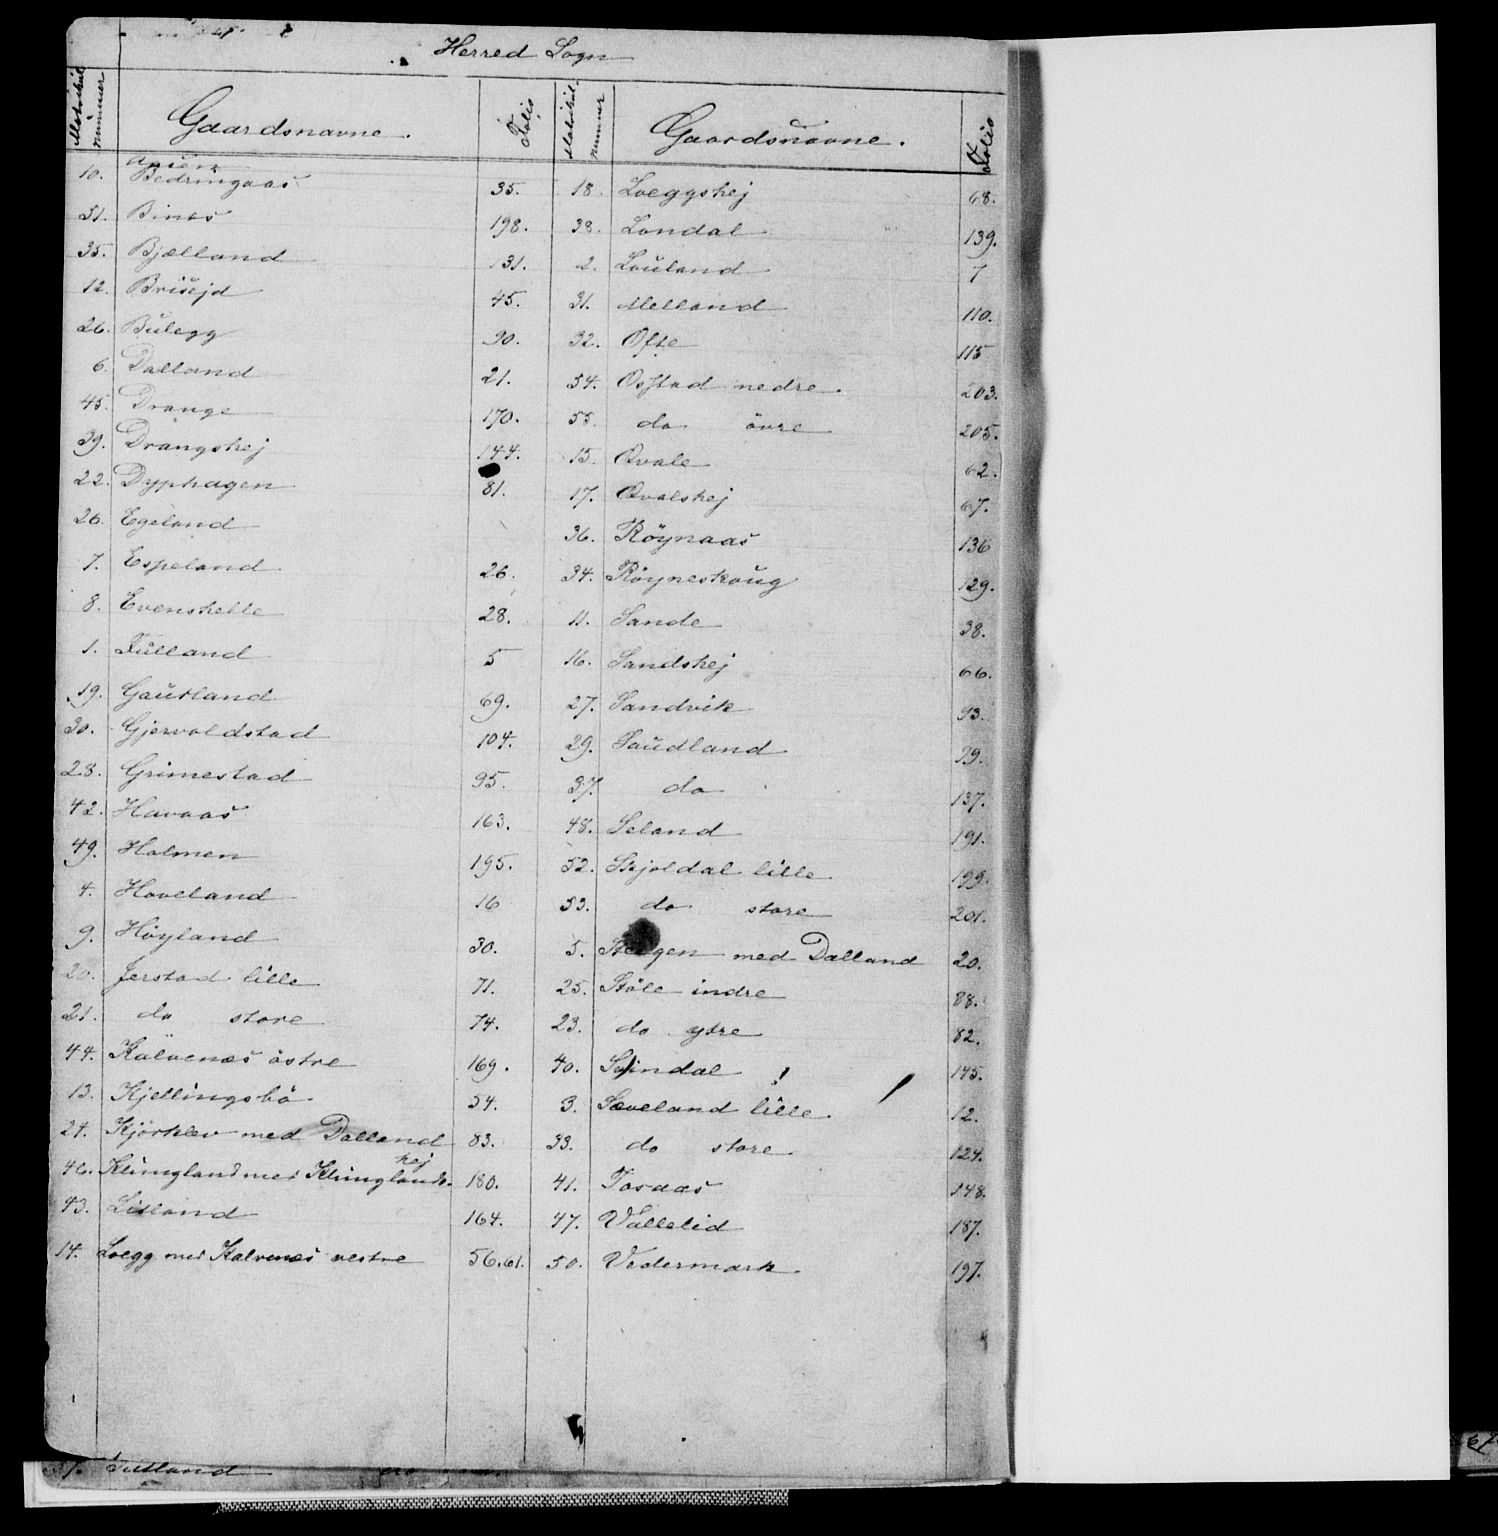 Herred Sogn
Matrikul nummer Gaardsnavne. Folio Matrikul nummer Gaardsnavne. Folio
10. Bedringaas 35. 18. Loeggshej 68.
51. Bines 198. 38. Londal 139.
35. Bjælland 131. 2. Louland 7
12. Brisejd 45. 31. Melland 110.
26. Bulegg 90. 32. Ofte 115
6. Dalland 21. 54. Osstad nedre. 203.
45. Drange 170. 55. do övre 205.
39. Drangshej 144. 15. Qvale 62.
22. Dyphagen 81. 17. Qvalshej 67.
26. Egeland 36. Röynaas 136
7. Espeland 26. 34. Röyneskoug 129.
8. Evenskelle 28. 11. Sande 38.
1. Fulland 5 16. Sandshej 66.
19. Gausland 69. 27. Sandvik 93.
30. Gjervoldstad 104. 29. Saudland 99.
28. Grimestad 95. 37. do 137.
42. Havaas 163. 48. Seland 191.
49. Holmen 195. 52. Skjoldal lille 199.
4. Hoveland 16 53. do store 201.
9. Höyland 30. 5. med Dalland 20.
20. Jerstad lille 71. 25. Stöle indre 88.
21. do store 74. 23. do ytre 82.
44. Kalvenæs östre 169. 40. Svindal 145.
13. Kjellingsbö 54. 3. Sæveland lille. 12.
24. Kjörklev med Dalland 83. 33. do store. 124.
46. Klungland med Klunglands-hej 180. 41. Tosaas 148.
43. Lisland 164. 47. Vallelid 187.
14. Loegg med Kalvenæs vestre 56.61. 50. Vedermark. 197.